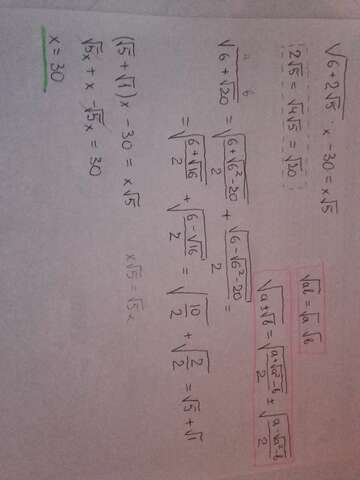 √(6+2√5) · x - 30 = x√5
2√5 = √4√5 = √20
√(ab) = √a √b
√(a±√b) = √((a+√(a²-b))/2) ± √((a-√(a²-b))/2)
a b
√(6+√20) = √((6+√(6²-20))/2) + √((6-√(6²-20))/2) =
= √((6+√16)/2) + √((6-√16)/2) = √(10/2) + √(2/2) = √5 + √1
(√5 + √1) x - 30 = x√5
x√5 = √5x
√5x + x - √5x = 30
x = 30